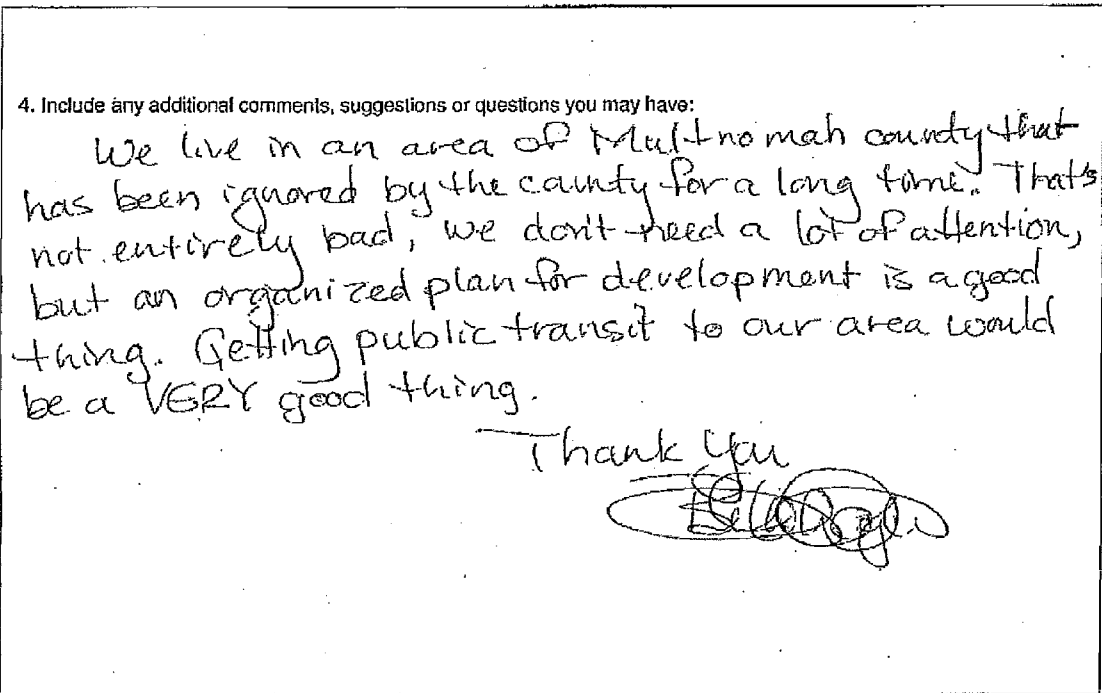 4. Include any additional comments, suggestions or questions you may have:
We live in an area of Multnomah county that
has been ignored by the county for a long time. That's
not entirely bad, we don't need a lot of attention,
but an organized plan for development is a good
thing. Getting public transit to our area would
be a VERY good thing.
Thank You